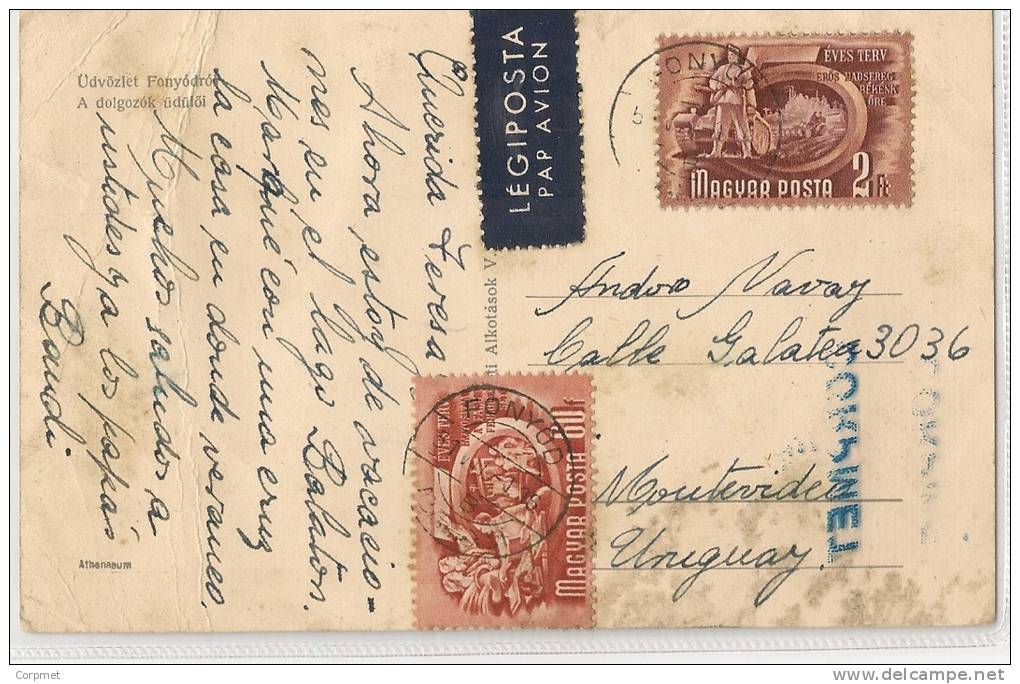 Üdvözlet Fonyódról
A dolgozók üdülői
Querida Teresa
Ahora estoy de vacacio-
nes en el lago Balaton.
Marqué con una cruz
la casa en donde veraneo.
Muchos saludos a
ustedes y a los papás
Bandi
Athenaeum
ti Alkotások V.
LÉGIPOSTA
PAR AVION
FONYÓD
ÉVES TERV
ERŐS HADSEREG
BÉKÉNK
ŐRE
MAGYAR POSTA 2 Ft
Andor Vavay
Calle Galatea 3036
Montevideo
Uruguay.
FONYÓD
ÉVES TERV
MAGYAR POSTA 60f
Corpmet
www.delcampe.net